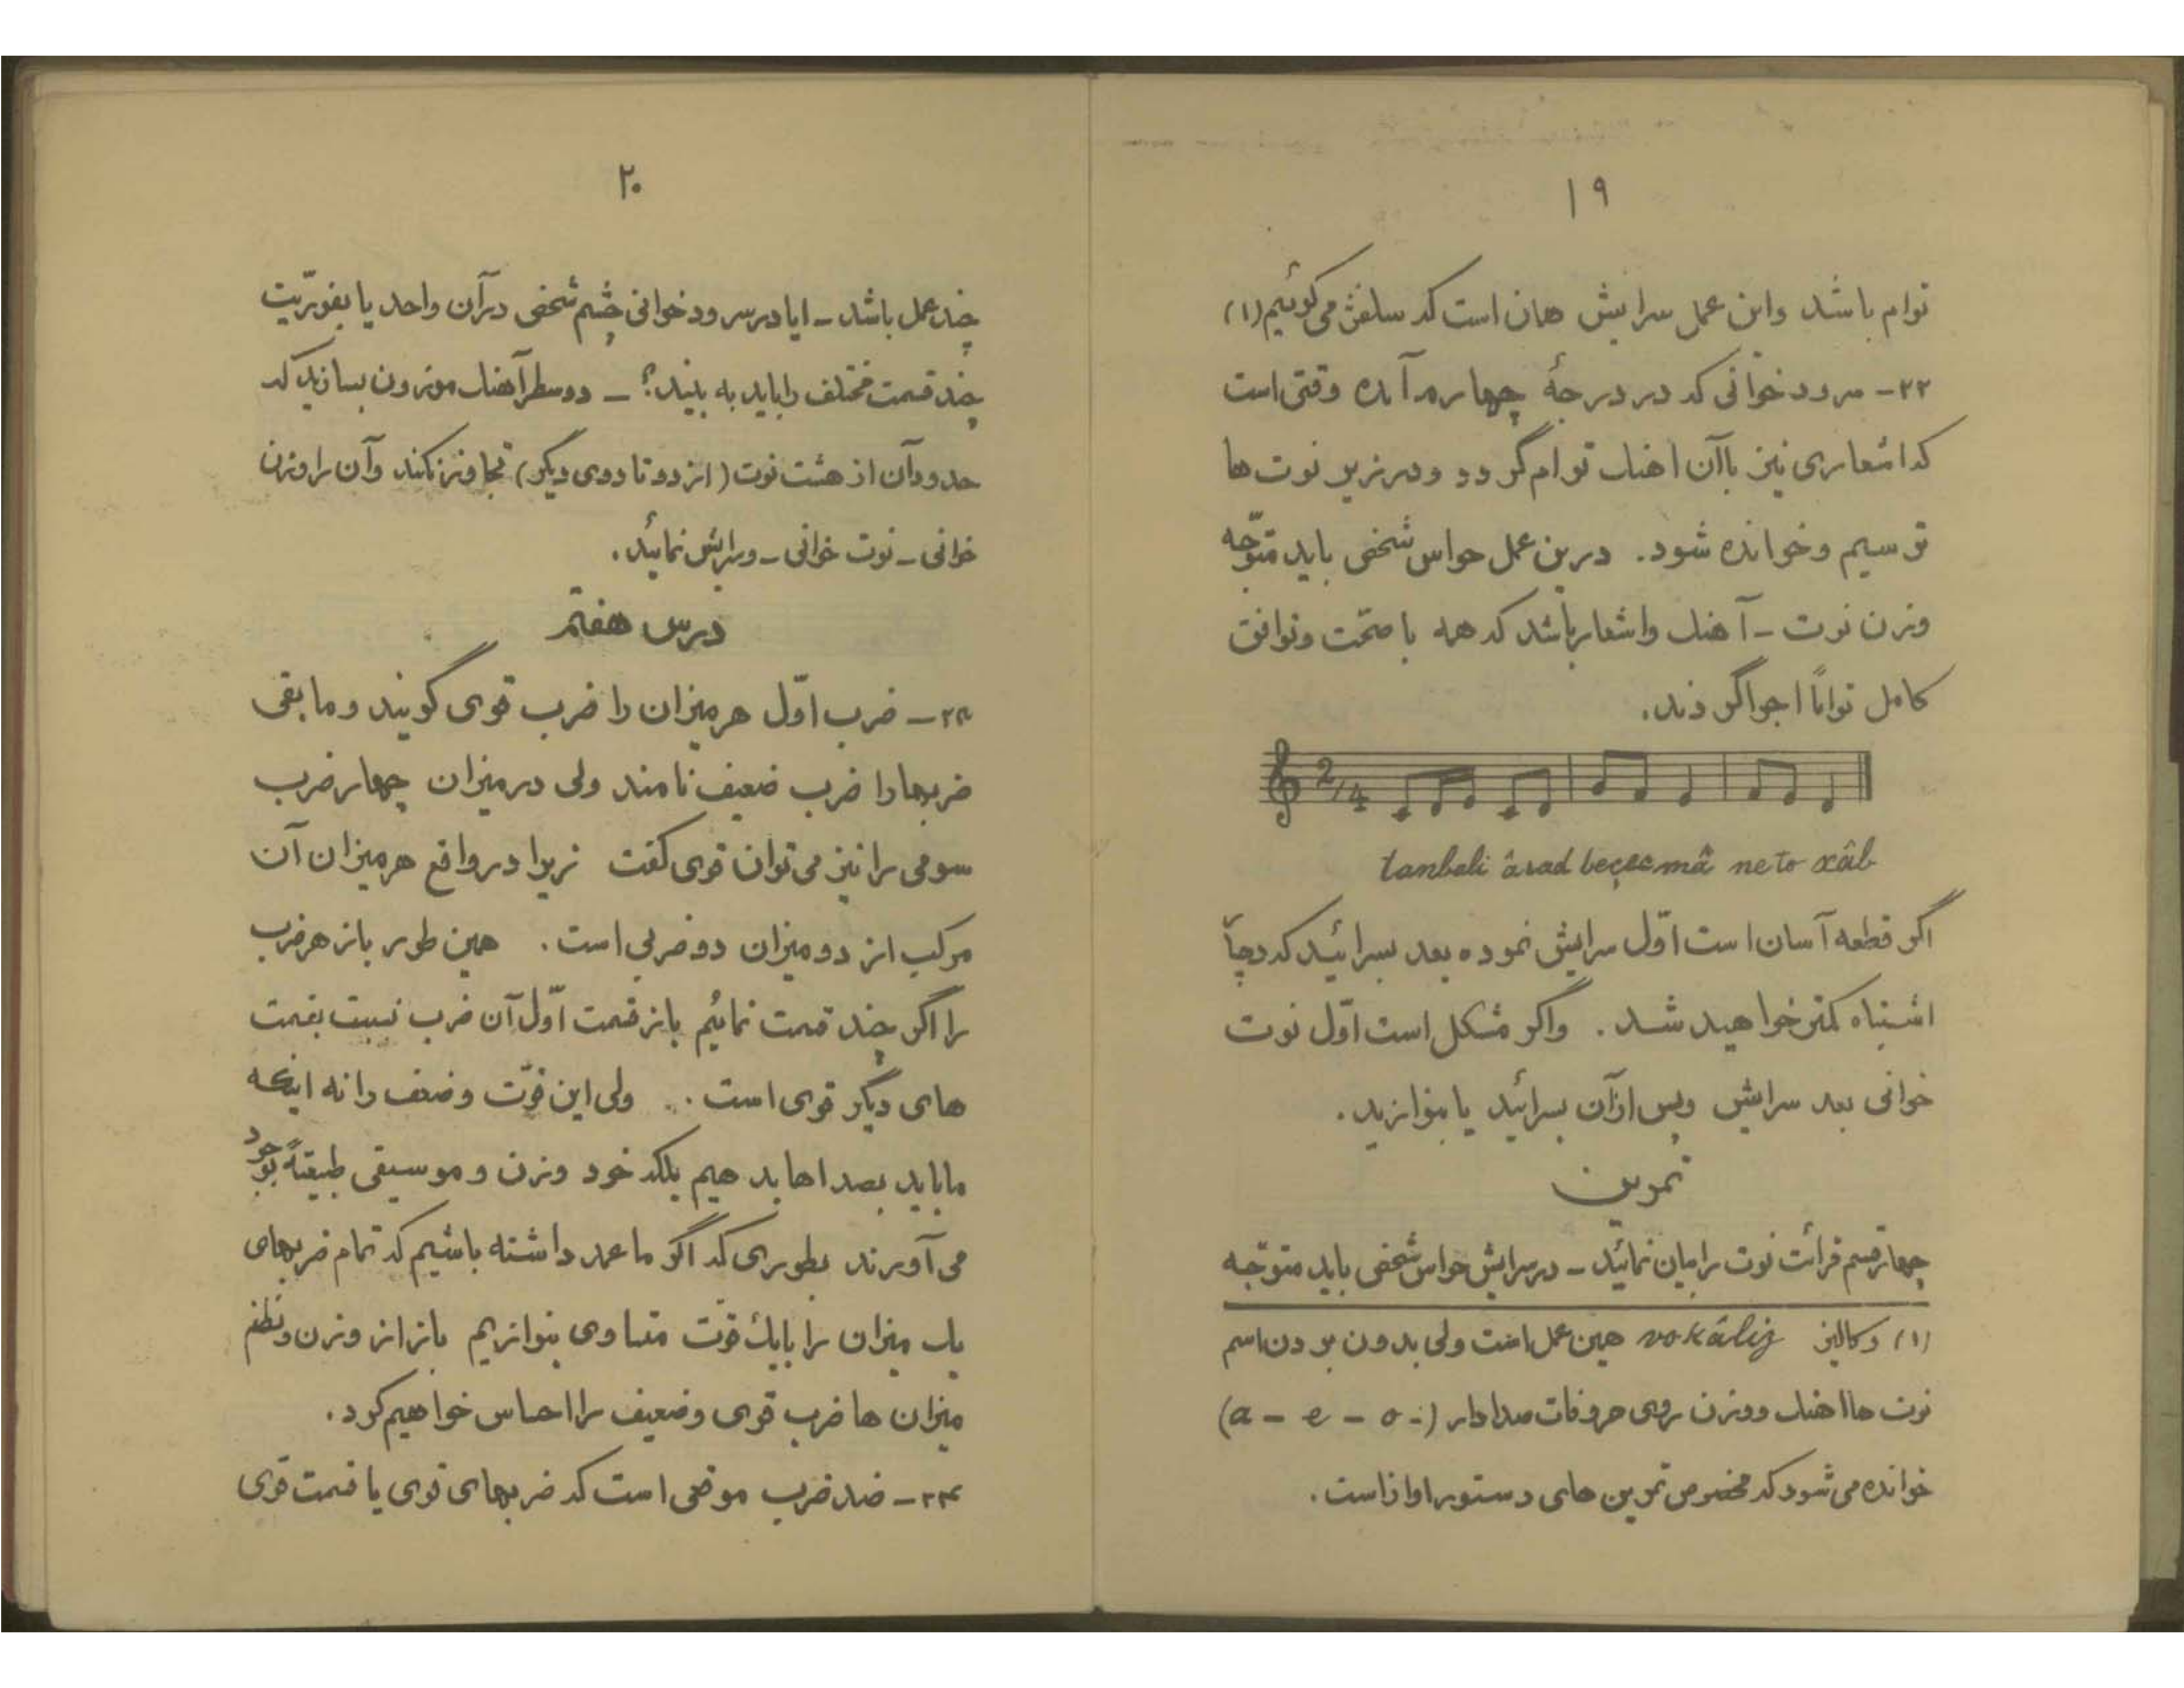 ۱۹
توام باشد واین عمل سرایش همان است که سلفژ می گوئیم (۱)
۲۲- سرود خوانی که در درجهٔ چهارم آمده وقتی است
که اشعاری نیز باآن اهنك توام گردد ودر زیر نوت ها
ترسیم وخوانده شود. درین عمل حواس شخص باید متوّجه
وزن نوت - آهنك واشعار باشد که همه با صحّت وتوافق
کامل تواماً اجرا گردند.
2/4
tanbali ârad beçes mâ ne to xâb
اگر قطعه آسان است اوّل سرایش نموده بعد بسرائید که دچار
اشتباه کمتر خواهید شد. واگر مشکل است اوّل نوت
خوانی بعد سرایش وپس ازآن بسرائید یا بنوازید.
تمرین
چهار قسم قرائت نوت را بیان نمائید - در سرایش حواس شخص باید متوّجه
(۱) وکالیز vokâliz همین عمل است ولی بدون بردن اسم
نوت ها اهنك ووزن روی حروفات صدادار (a - e - o -)
خوانده می شود که مخصوص تمرین های دستور اواز است.
۲۰
چند عمل باشد - ایا در سرود خوانی چشم شخص درآن واحد یا بفوریّت
چند قسمت مختلف را باید به بیند؟ - دو سطر آهنك موزون بسازید که
حدود آن از هشت نوت (از دو تا دوی دیگر) تجاوز نکند وآن را وزن
خوانی - نوت خوانی - وسرایش نمائید.
درس هفتم
۲۳- ضرب اوّل هر میزان را ضرب قوی گویند و مابقی
ضربها را ضرب ضعیف نامند ولی در میزان چهار ضرب
سومی را نیز می توان قوی گفت زیرا در واقع هر میزان آن
مرکب از دو میزان دو ضربی است. همین طور باز هر ضرب
را اگر چند قسمت نمائیم باز قسمت اوّل آن ضرب نسبت بقسمت
های دیگر قوی است. ولی این قوّت وضعف را نه اینکه
ما باید بصداها بدهیم بلکه خود وزن و موسیقی طبیعتاً بوجود
می آورند بطوری که اگر ما عمد داشته باشیم که تمام ضربهای
یك میزان را بایك قوّت متساوی بنوازیم باز از وزن ونظم
میزان ها ضرب قوی وضعیف را احساس خواهیم کرد.
۲۴- ضد ضرب موقعی است که ضربهای قوی یا قسمت قوی